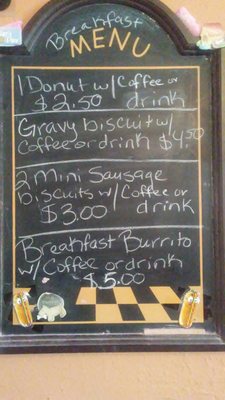 Breakfast
MENU
1 Donut w/ Coffee or
$2.50 drink
Gravy biscuit w/
Coffee or drink $4.50
2 Mini Sausage
biscuits w/ Coffee or
$3.00 drink
Breakfast Burrito
w/ Coffee or drink
$5.00